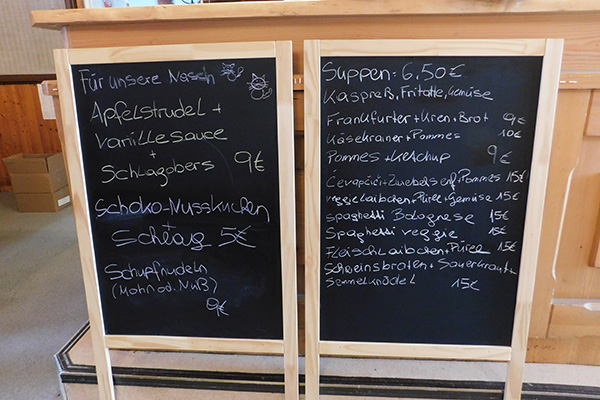 Für unsere Nasch
Apfelstrudel +
Vanillesauce
+
Schlagobers 9€
Schoko-Nusskuchen
+
Schlag 5€
Schupfnudeln
(Mohn od. Nuß)
9€
Suppen: 6,50€
Kaspreß, Fritatte, Gemüse
Frankfurter + Kren + Brot 9€
Käsekrainer + Pommes 10€
Pommes + Ketchup 9€
Čevapčići + Zwiebel Senf + Pommes 15€
veggie Laibchen + Püree + Gemüse 15€
Spaghetti Bolognese 15€
Spaghetti veggie 15€
Fleischlaibchen + Püree 15€
Schweinsbraten + Sauerkraut +
Semmelknödel 15€